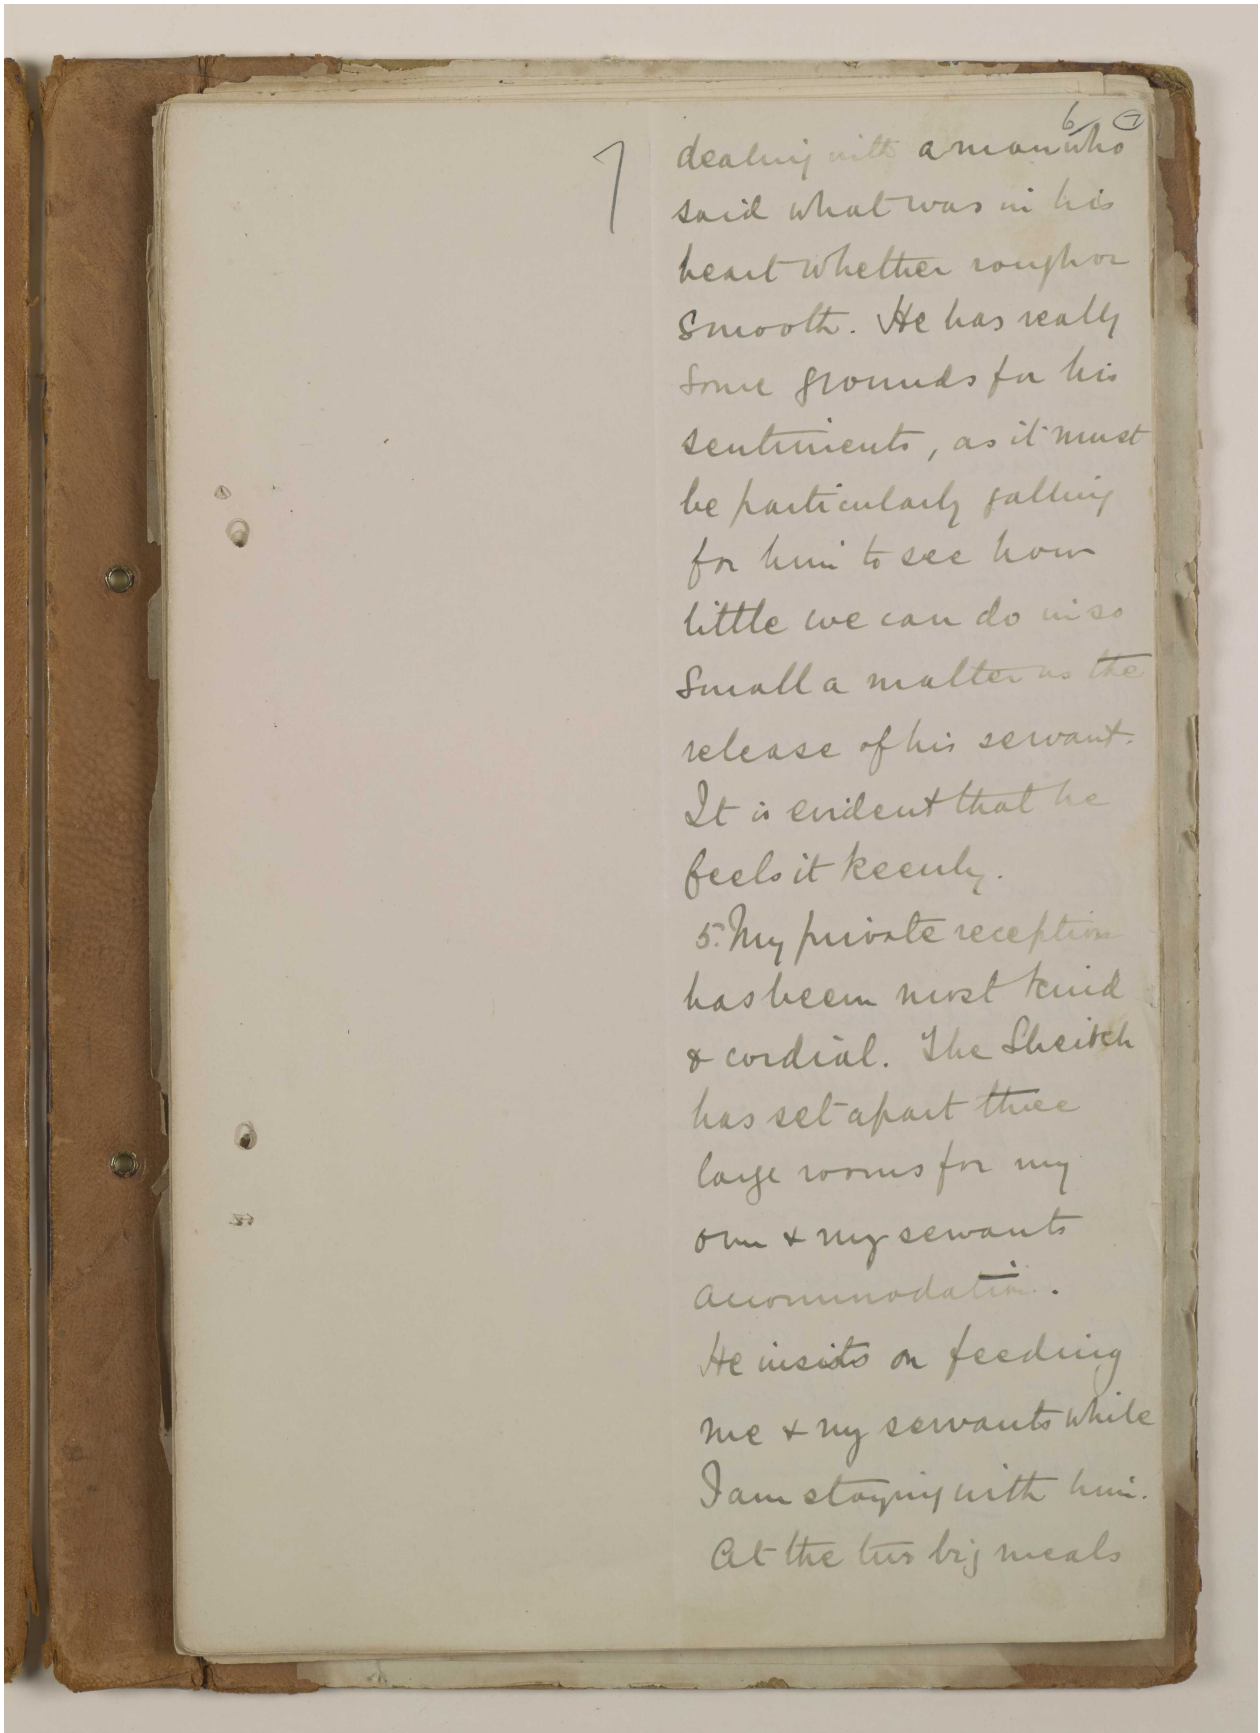 6 7
7
dealing with a man who
said what was in his
heart whether rough or
smooth. He has really
some grounds for his
sentiments, as it must
be particularly galling
for him to see how
little we can do in so
small a matter as the
release of his servant.
It is evident that he
feels it keenly.
5. My private reception
has been most kind
& cordial. The Sheikh
has set apart three
large rooms for my
own & my servants
accommodation.
He insists on feeding
me & my servants while
I am staying with him.
At the two big meals